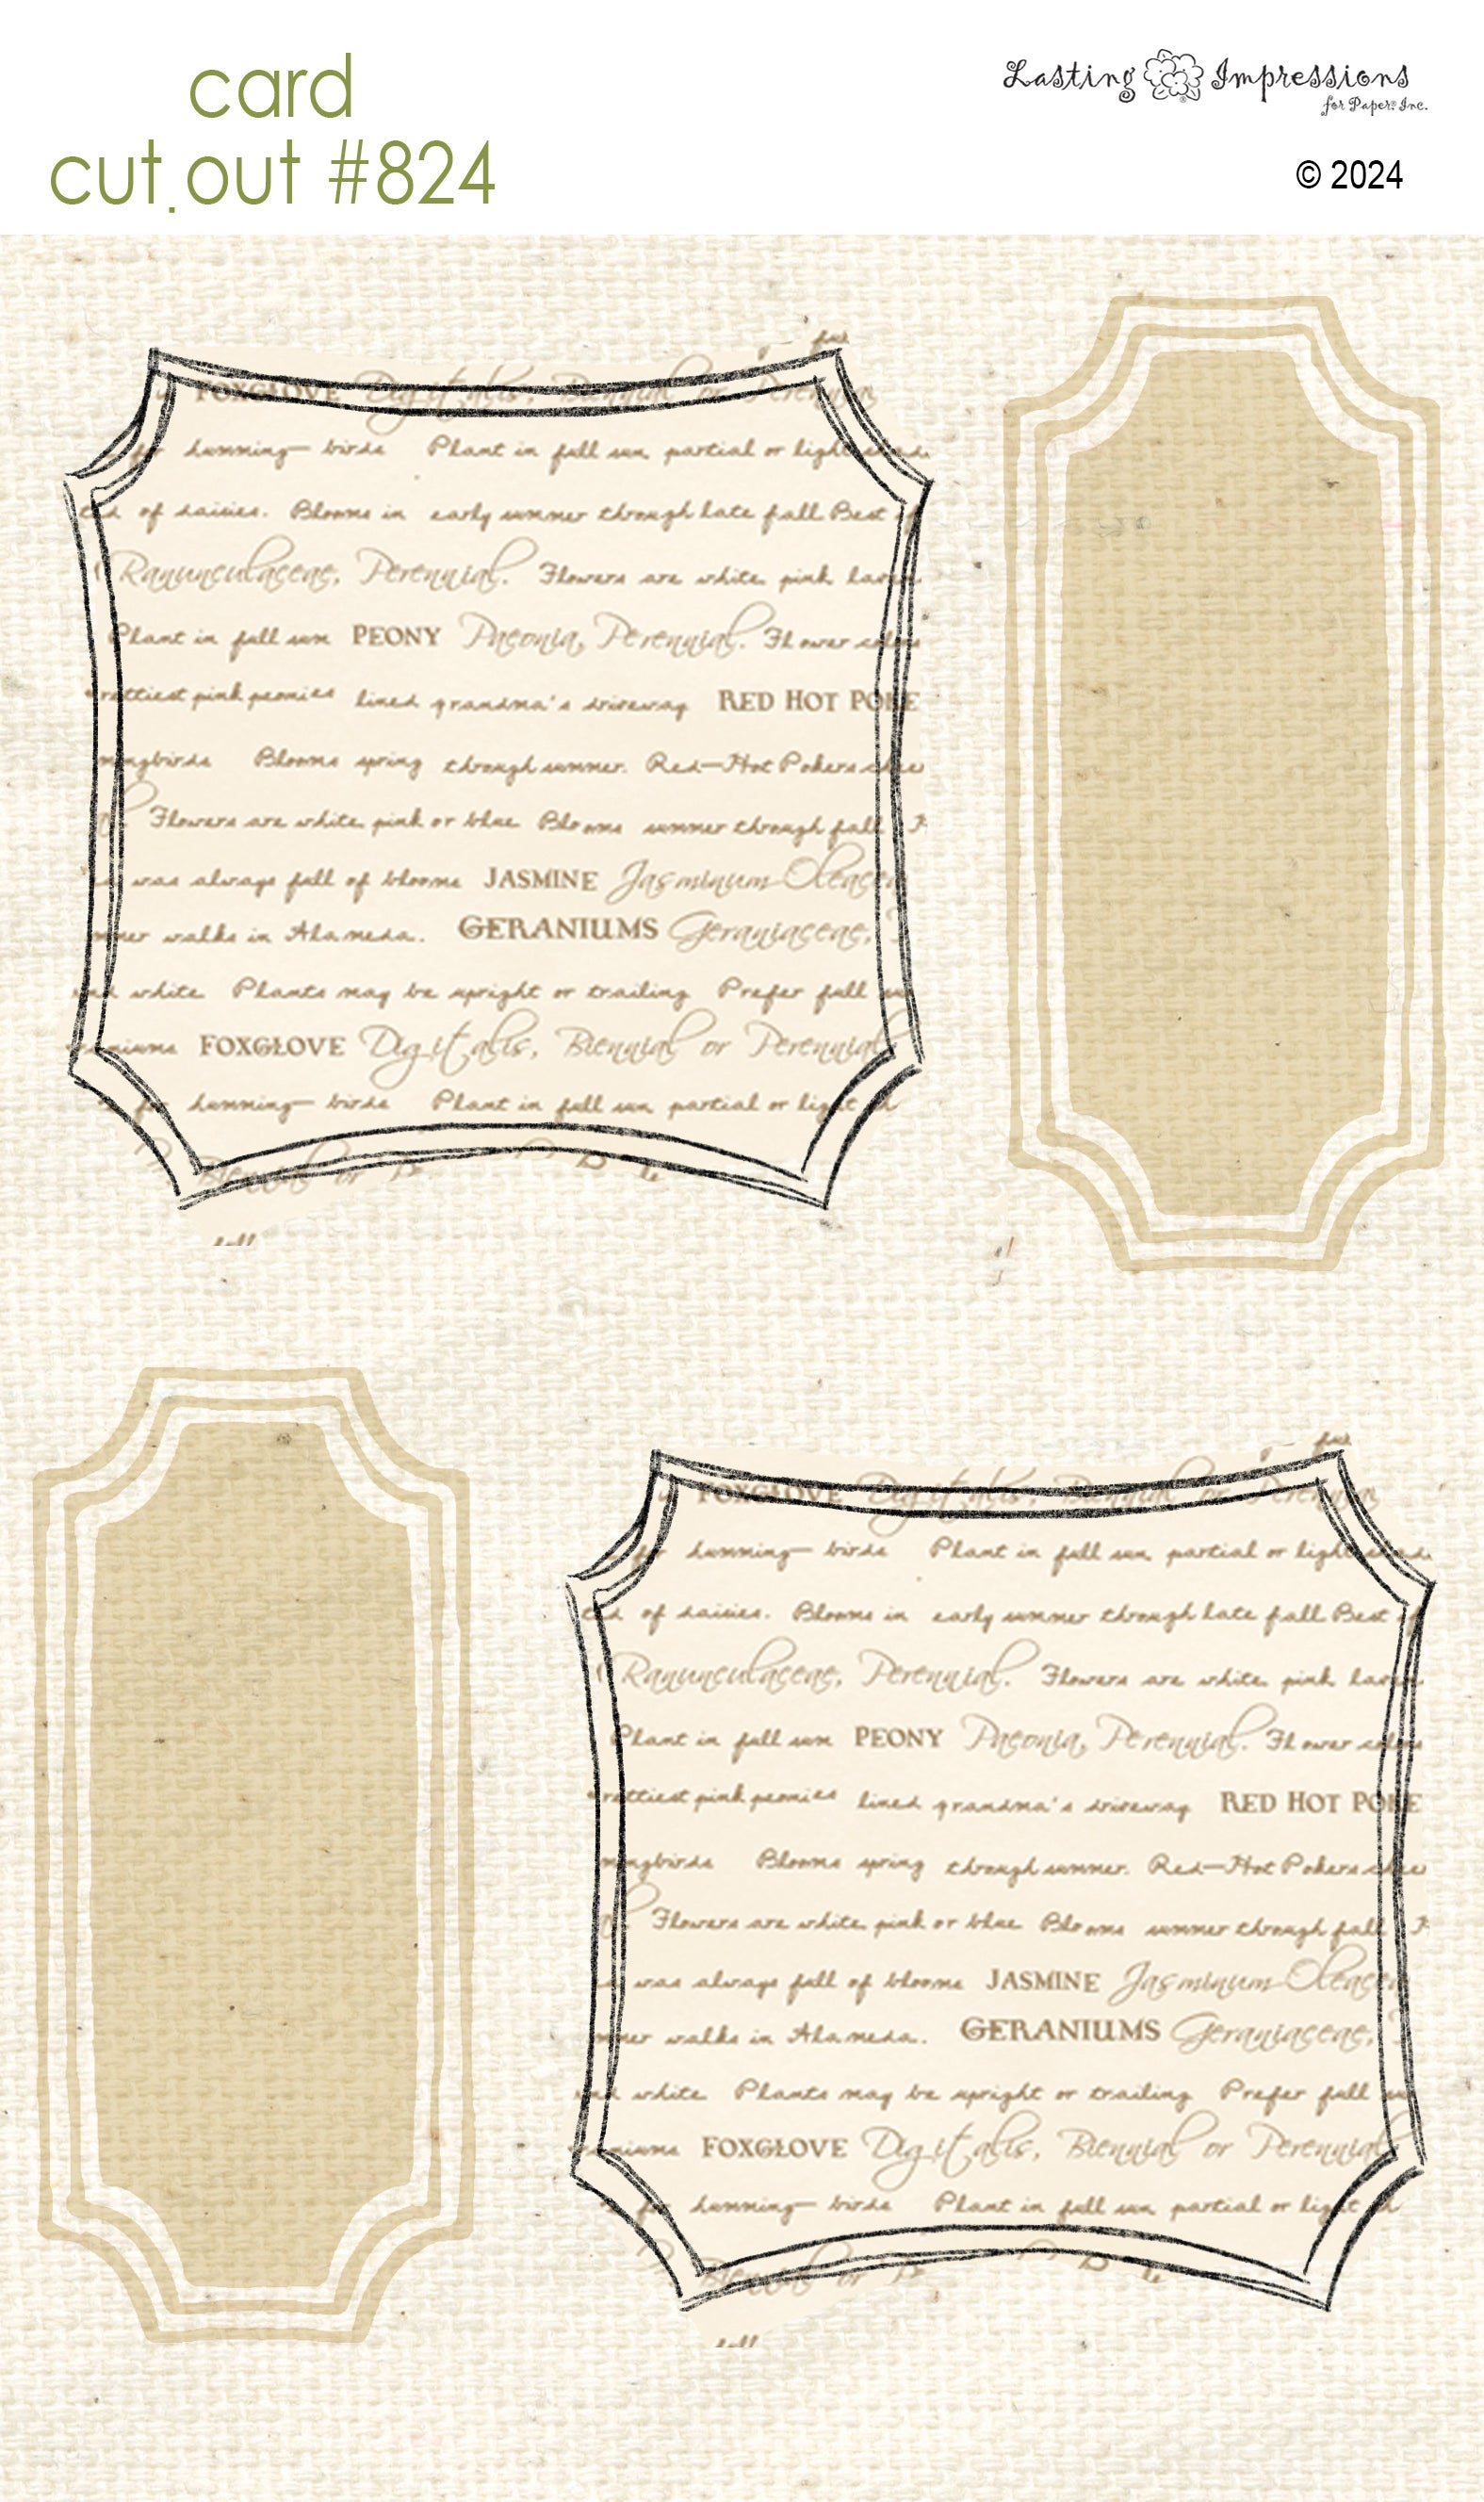 card
cut.out #824
Lasting Impressions
for Paper® Inc.
© 2024
full
FOXGLOVE Digitalis, Biennial or Perennial,
for humming birds Plant in full sun partial or light shad.
of daisies. Blooms in early summer through late fall Best
Ranunculaceae, Perennial. Flowers are white, pink laven
Plant in full sun PEONY Paeonia, Perennial. Flower colors
rettiest pink peonies lined grandma's driveway RED HOT POKE
mingbirds Blooms spring through summer. Red-Hot Pokers
Flowers are white, pink or blue Blooms summer through fall
was always full of blooms JASMINE Jasminum Oleacea
mer walks in Alameda. GERANIUMS Geraniaceae,
and white Plants may be upright or trailing Prefer full su
raniums FOXGLOVE Digitalis, Biennial or Perennial,
for humming birds Plant in full sun partial or light sh
Biennial or
full
full
FOXGLOVE Digitalis, Biennial or Perennial,
for humming birds Plant in full sun partial or light shad.
of daisies. Blooms in early summer through late fall Best
Ranunculaceae, Perennial. Flowers are white, pink laven
Plant in full sun PEONY Paeonia, Perennial. Flower colors
rettiest pink peonies lined grandma's driveway RED HOT POKE
mingbirds Blooms spring through summer. Red-Hot Pokers
Flowers are white, pink or blue Blooms summer through fall
was always full of blooms JASMINE Jasminum Oleacea
mer walks in Alameda. GERANIUMS Geraniaceae,
and white Plants may be upright or trailing Prefer full su
raniums FOXGLOVE Digitalis, Biennial or Perennial,
for humming birds Plant in full sun partial or light sh
Biennial or
full